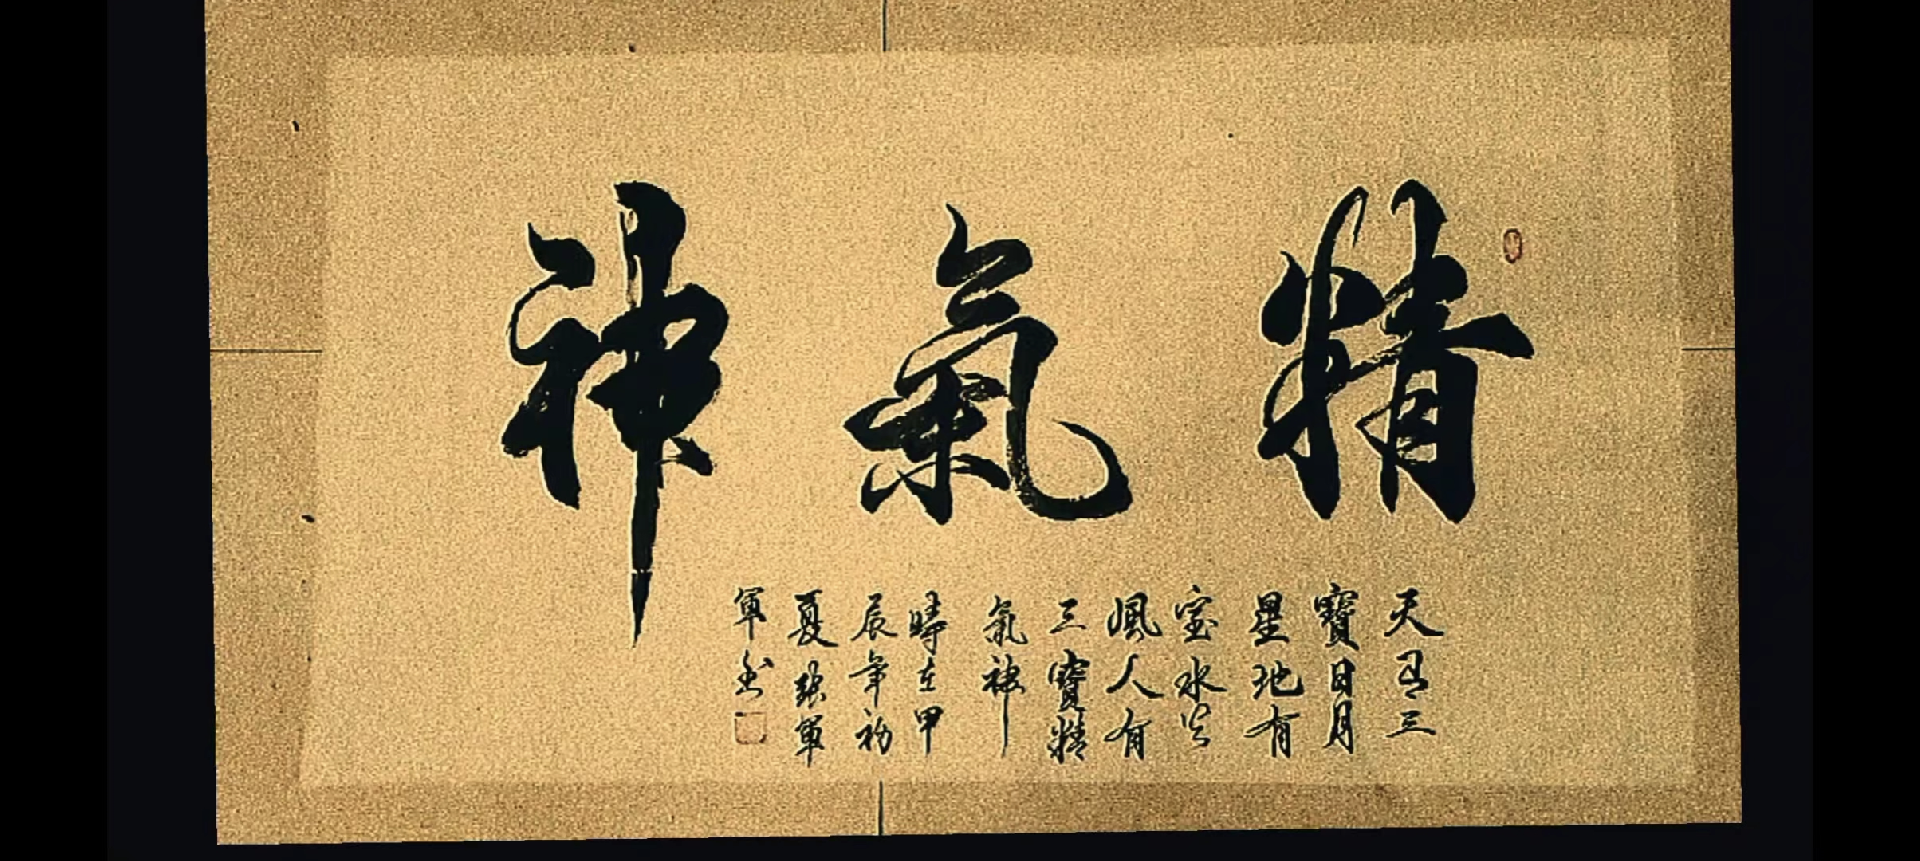 精氣神
天有三
寶日月
星地有
宝水火
風人有
三寶精
氣神
時在甲
辰年初
夏張軍
軍書